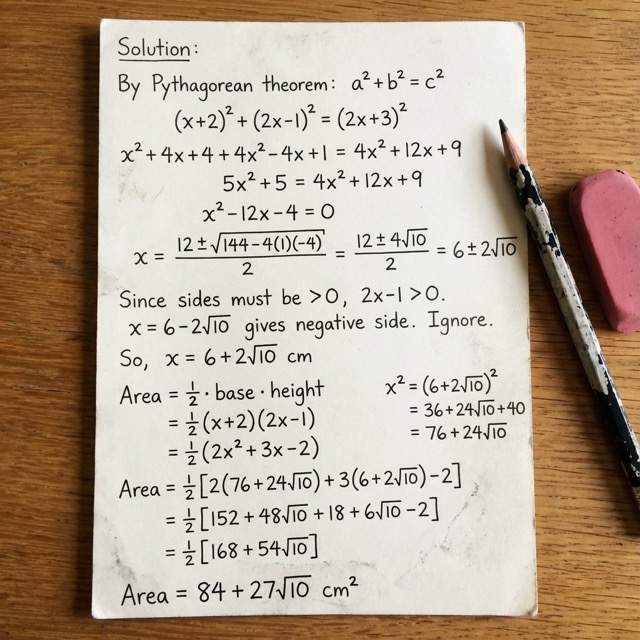 Solution:
By Pythagorean theorem: a² + b² = c²
(x+2)² + (2x−1)² = (2x+3)²
x² + 4x + 4 + 4x² − 4x + 1 = 4x² + 12x + 9
5x² + 5 = 4x² + 12x + 9
x² − 12x − 4 = 0
x = (12 ± √(144 − 4(1)(−4)))/2 = (12 ± 4√10)/2 = 6 ± 2√10
Since sides must be >0, 2x−1 >0.
x = 6 − 2√10 gives negative side. Ignore.
So, x = 6 + 2√10 cm
Area = ½ · base · height
= ½ (x+2)(2x−1)
= ½ (2x² + 3x − 2)
x² = (6+2√10)²
= 36 + 24√10 + 40
= 76 + 24√10
Area = ½ [2(76 + 24√10) + 3(6 + 2√10) − 2]
= ½ [152 + 48√10 + 18 + 6√10 − 2]
= ½ [168 + 54√10]
Area = 84 + 27√10 cm²